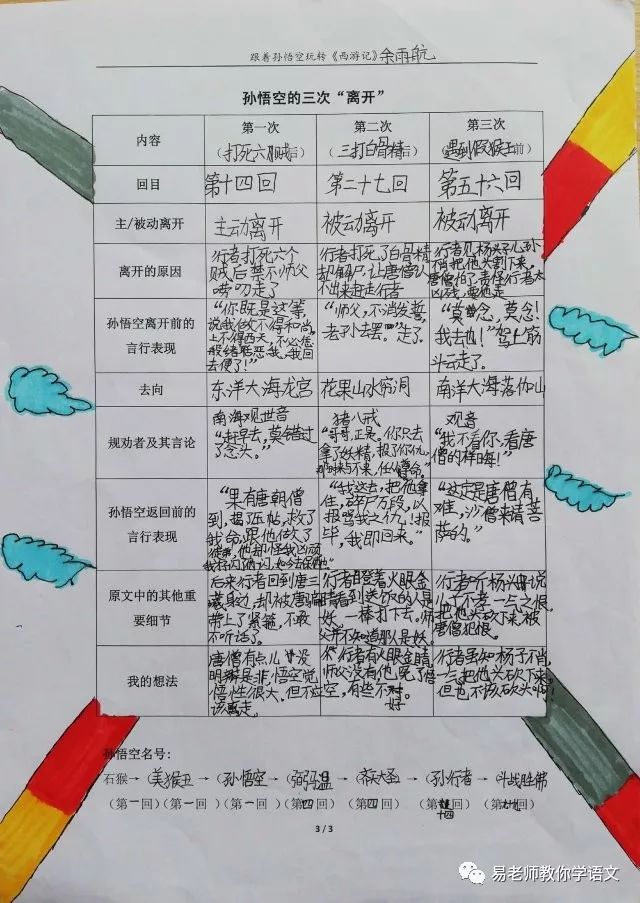 跟着孙悟空玩转《西游记》余雨航
孙悟空的三次“离开”
内容
第一次
（打死六贼后）
第二次
（三打白骨精后）
第三次
（遇到假猴王前）
回目
第十四回
第二十七回
第五十六回
主/被动离开
主动离开
被动离开
被动离开
离开的原因
行者打死六个
贼后禁不师父
唠叨走了
行者打死了白骨精
却解尸,让唐僧认
不出来赶走行者
行者见杨
把他头割下来,
唐僧怕了责怪行者太
凶残,要他走
孙悟空离开前的
言行表现
“你既是这等,
说我做不得和尚,
上不得西天,不必恁
般绪聒恶我,我回
去便了!”
“师父,不消发誓,
老孙去罢。”走了。
“莫念,莫念!
我去也!”驾上筋
斗云走了。
去向
东洋大海龙宫
花果山水帘洞
南洋大海落伽山
规劝者及其言论
南海观世音
“赶早去,莫错过
了念头。”
猪八戒
“哥哥,正是。你只去
拿了妖精,报了你仇,
那时来与不来,任从尊命。”
观音
“我不看你,看唐
僧的祥晦!”
孙悟空返回前的
言行表现
“果有唐朝僧
到,揭了压帖,救了
我命,跟他做了
徒弟,他却怪我凶顽
“我这去,把他拿
住,碎尸万段,以
报骂我之仇!报
毕,我即回来。”
“这定是唐僧有
难,沙僧来请菩
萨的。”
原文中的其他重
要细节
后来行者回到唐三
藏身边,却被唐僧
带上了紧箍,不敢
不听话了
行者睁着火眼金
睛看到送饭的人是
妖,一棒打下去。师
父并不知道那人是妖
行者听杨
儿子不孝一气之恨
把他头砍下来,被
唐僧狠恨。
我的想法
唐僧有点儿没
明辨是非,悟空觉
悟性很大,但不应
该离走
行者有火眼金睛
师父没有他,冤了悟
空,有些不好
行者虽知杨子不肖,
一气把他头砍下来
但也不该砍头啊!
孙悟空名号:
石猴→(美猴王→(孙悟空→(弼马温→(齐天大圣→(孙行者→(斗战胜佛
(第一回)(第一回)(第一回)(第四回)(第四回)(第十四回)(第
3 / 3
易老师教你学语文